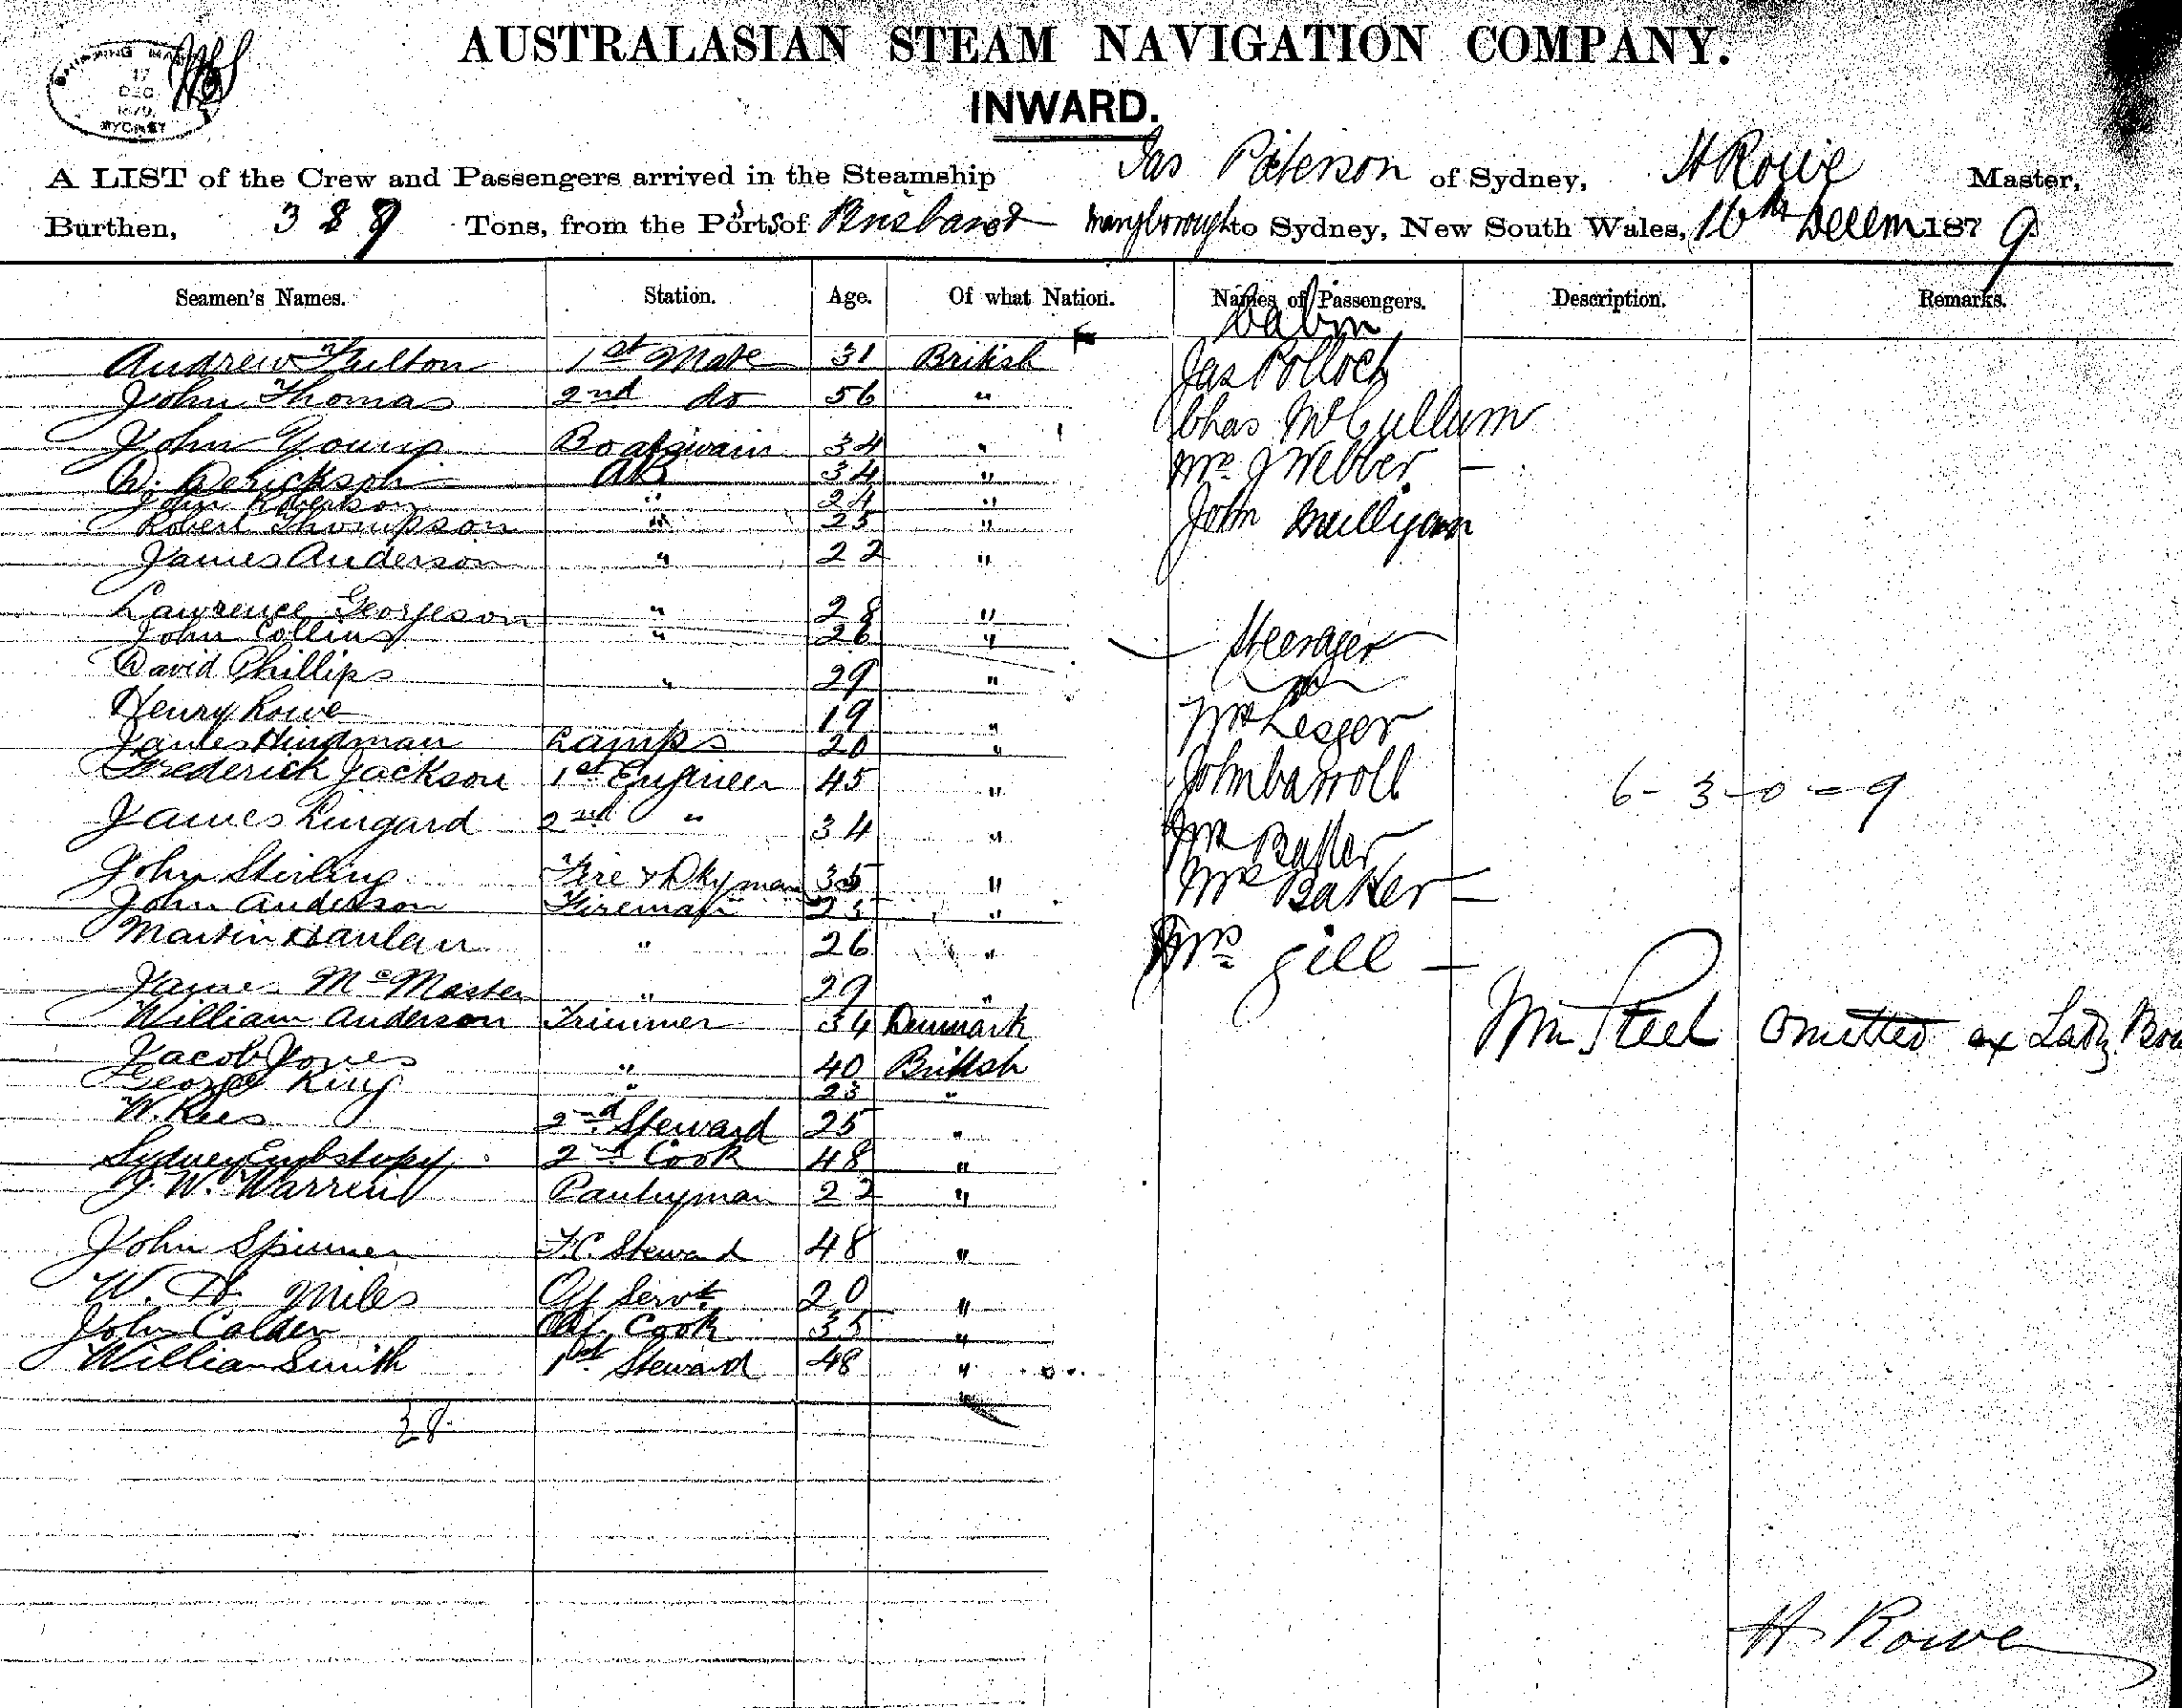 SHIPPING MA
17
DEC
1879
SYDNEY
AUSTRALASIAN STEAM NAVIGATION COMPANY.
INWARD.
A LIST of the Crew and Passengers arrived in the Steamship Jas Paterson of Sydney, H Rowe Master,
Burthen, 389 Tons, from the Ports of Brisbane & to Sydney, New South Wales, 16th Decem 1879
Seamen's Names. Station. Age. Of what Nation. Names of Passengers. Description. Remarks.
Cabin
Andrew Fulton 1st Mate 31 British Jas Pollock
John Thomas 2nd do 56 " Chas McCullum
John Young Boatswain 34 " Mrs J Webber —
D. Derickson AB 34 " John Mulligan
John Robertson " 24 "
Robert Thompson " 25 "
James Anderson " 22 "
Lawrence Georgeson " 28 "
John Collins " 26 " Steerage
David Phillips " 29 "
Henry Rowe 19 " Mr Lesger
James Hindman Lamps 20 "
Frederick Jackson 1st Engineer 45 " John Carroll 6-3-0=9
James Lingard 2nd " 34 " Mr Baker
John Stirling Fire & Dkyman 35 " Mrs Baker —
John Anderson Fireman 25 "
Martin Hanlan " 26 " Mrs Gill —
James McMaster " 29 "
William Anderson Trimmer 34 Denmark Wm Steel Omitted ex Lady Bow
Jacob Jones " 40 British
George King " 23 "
W. Rees 2nd Steward 25 "
Sydney 2nd Cook 48 "
J. W. Warren Pantryman 22 "
John Spinner F.C. Steward 48 "
W. H. Miles Off Servt 20 "
John Calder Cook 35 "
William Smith 1st Steward 48 "
28
H Rowe